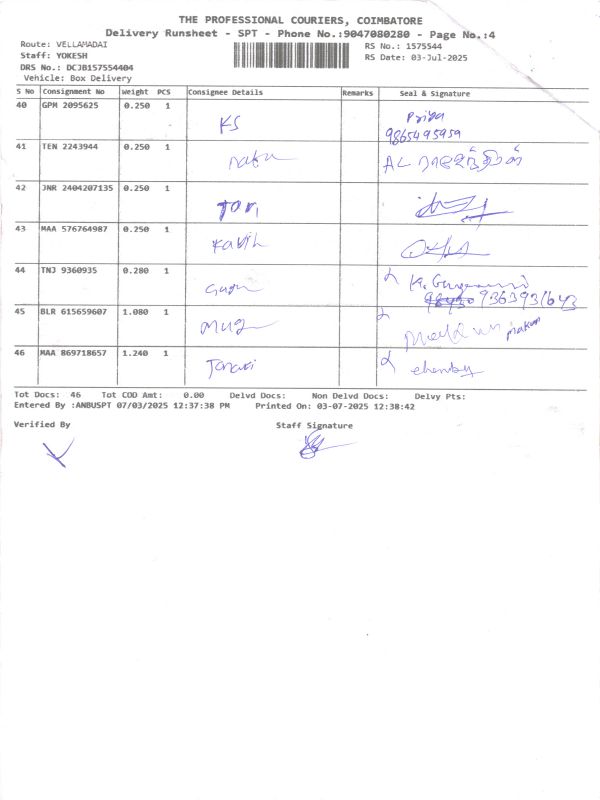 THE PROFESSIONAL COURIERS, COIMBATORE
Delivery Runsheet - SPT - Phone No.:9047080280 - Page No.:4
Route: VELLAMADAI
Staff: YOKESH
DRS No.: DCJB157554404
Vehicle: Box Delivery
RS No.: 1575544
RS Date: 03-Jul-2025
S No Consignment No Weight PCS Consignee Details Remarks Seal & Signature
40 GPM 2095625 0.250 1 KS Priya
9865495959
41 TEN 2243944 0.250 1
42 JNR 2404207135 0.250 1 Tori
43 MAA 576764987 0.250 1
44 TNJ 9360935 0.280 1 9363931643
45 BLR 615659607 1.080 1
46 MAA 869718657 1.240 1
Tot Docs: 46 Tot COD Amt: 0.00 Delvd Docs: Non Delvd Docs: Delvy Pts:
Entered By :ANBUSPT 07/03/2025 12:37:38 PM Printed On: 03-07-2025 12:38:42
Verified By Staff Signature